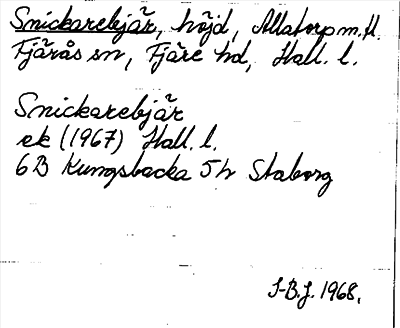 Snickarebjär, höjd, Allatorp m.fl.
Fjärås sn, Fjäre hd, Hall. l.
Snickarebjär
ek (1967) Hall. l.
6B Kungsbacka 5h Staborg
S-B.J. 1968.